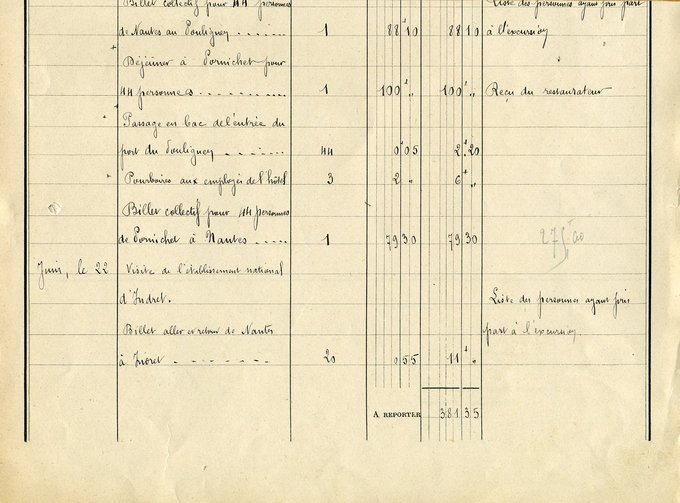 Billet collectif pour 44 personnes Liste des personnes ayant pris part
de Nantes au Pouliguen ....... 1 88 10 88 10 à l'excursion
Déjeuner à Pornichet pour "
44 personnes ......... 1 100 " 100 " Reçu du restaurateur
Passage en bac de l'entrée du
port du Pouliguen ....... 44 0 05 2 20
Pourboires aux employés de l'hôtel 3 2 " 6 "
Billet collectif pour 44 personnes
de Pornichet à Nantes ..... 1 79 30 79 30
Juin, le 22 Visite de l'établissement national
d'Indret. Liste des personnes ayant pris
Billet aller et retour de Nantes part à l'excursion.
à Indret ........ 20 0 55 11 "
A REPORTER 381 35